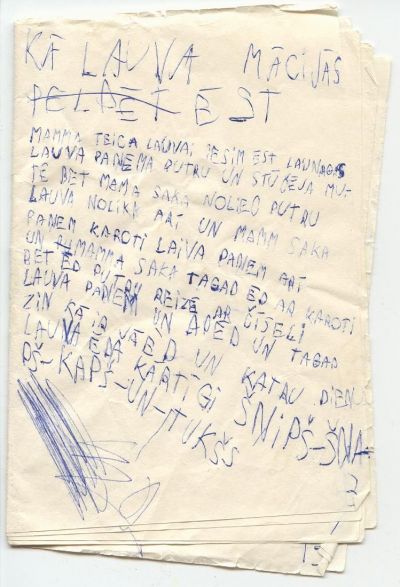 KĀ LAUVA MĀCIJĀS
PELDĒT ĒST
MAMMA TEICA LAUVAI IESIM EST LAUNAGS
LAUVA PANEMA PUTRU UN STŪĶĒJA MU-
TE BET MAMA SAKA NOLIEC PUTRU
LAUVA NOLIKA ARĪ UN MAMM SAKA
PANEM KAROTI LAIVA PANEM ARĪ
UN MAMMA SAKA TAGAD ĒD AR KAROTI
BET ĒD PUTRU REIZĒ AR
LAUVA PANEM UN AĒD UN TAGAD
ZIN KĀ IR JAĒD UN KATRU DIENU
LAUVA ĒDA KĀRTĪGI ŠŅIPŠ-ŠŅA-
PŠ-KAPŠ-UN-TUKŠS